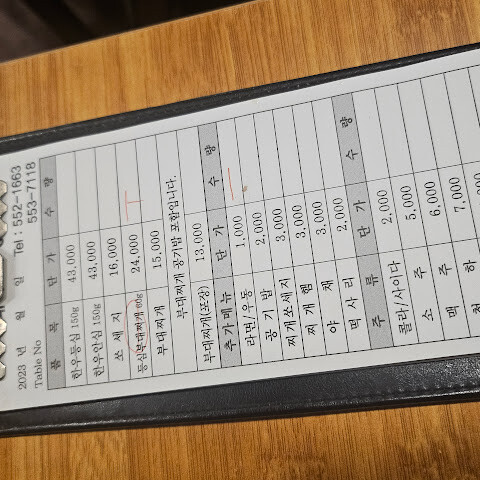 2023 년 월 일 Tel : 552-1663
Table No 553-7118
품 목 단 가 수 량
한우등심 150g 43,000
한우안심 150g 43,000
쏘 세 지 16,000
등심부대찌개 60g 24,000
부대찌개 15,000
부대찌개 공기밥 포함입니다.
부대찌개(포장) 13,000
추가메뉴 단 가 수 량
라면/우동 1,000
공 기 밥 2,000
찌개쏘세지 3,000
찌 개 햄 3,000
야 채 3,000
떡 사 리 2,000
주 류 단 가 수 량
콜라/사이다 2,000
소 주 5,000
맥 주 6,000
청 하 7,000